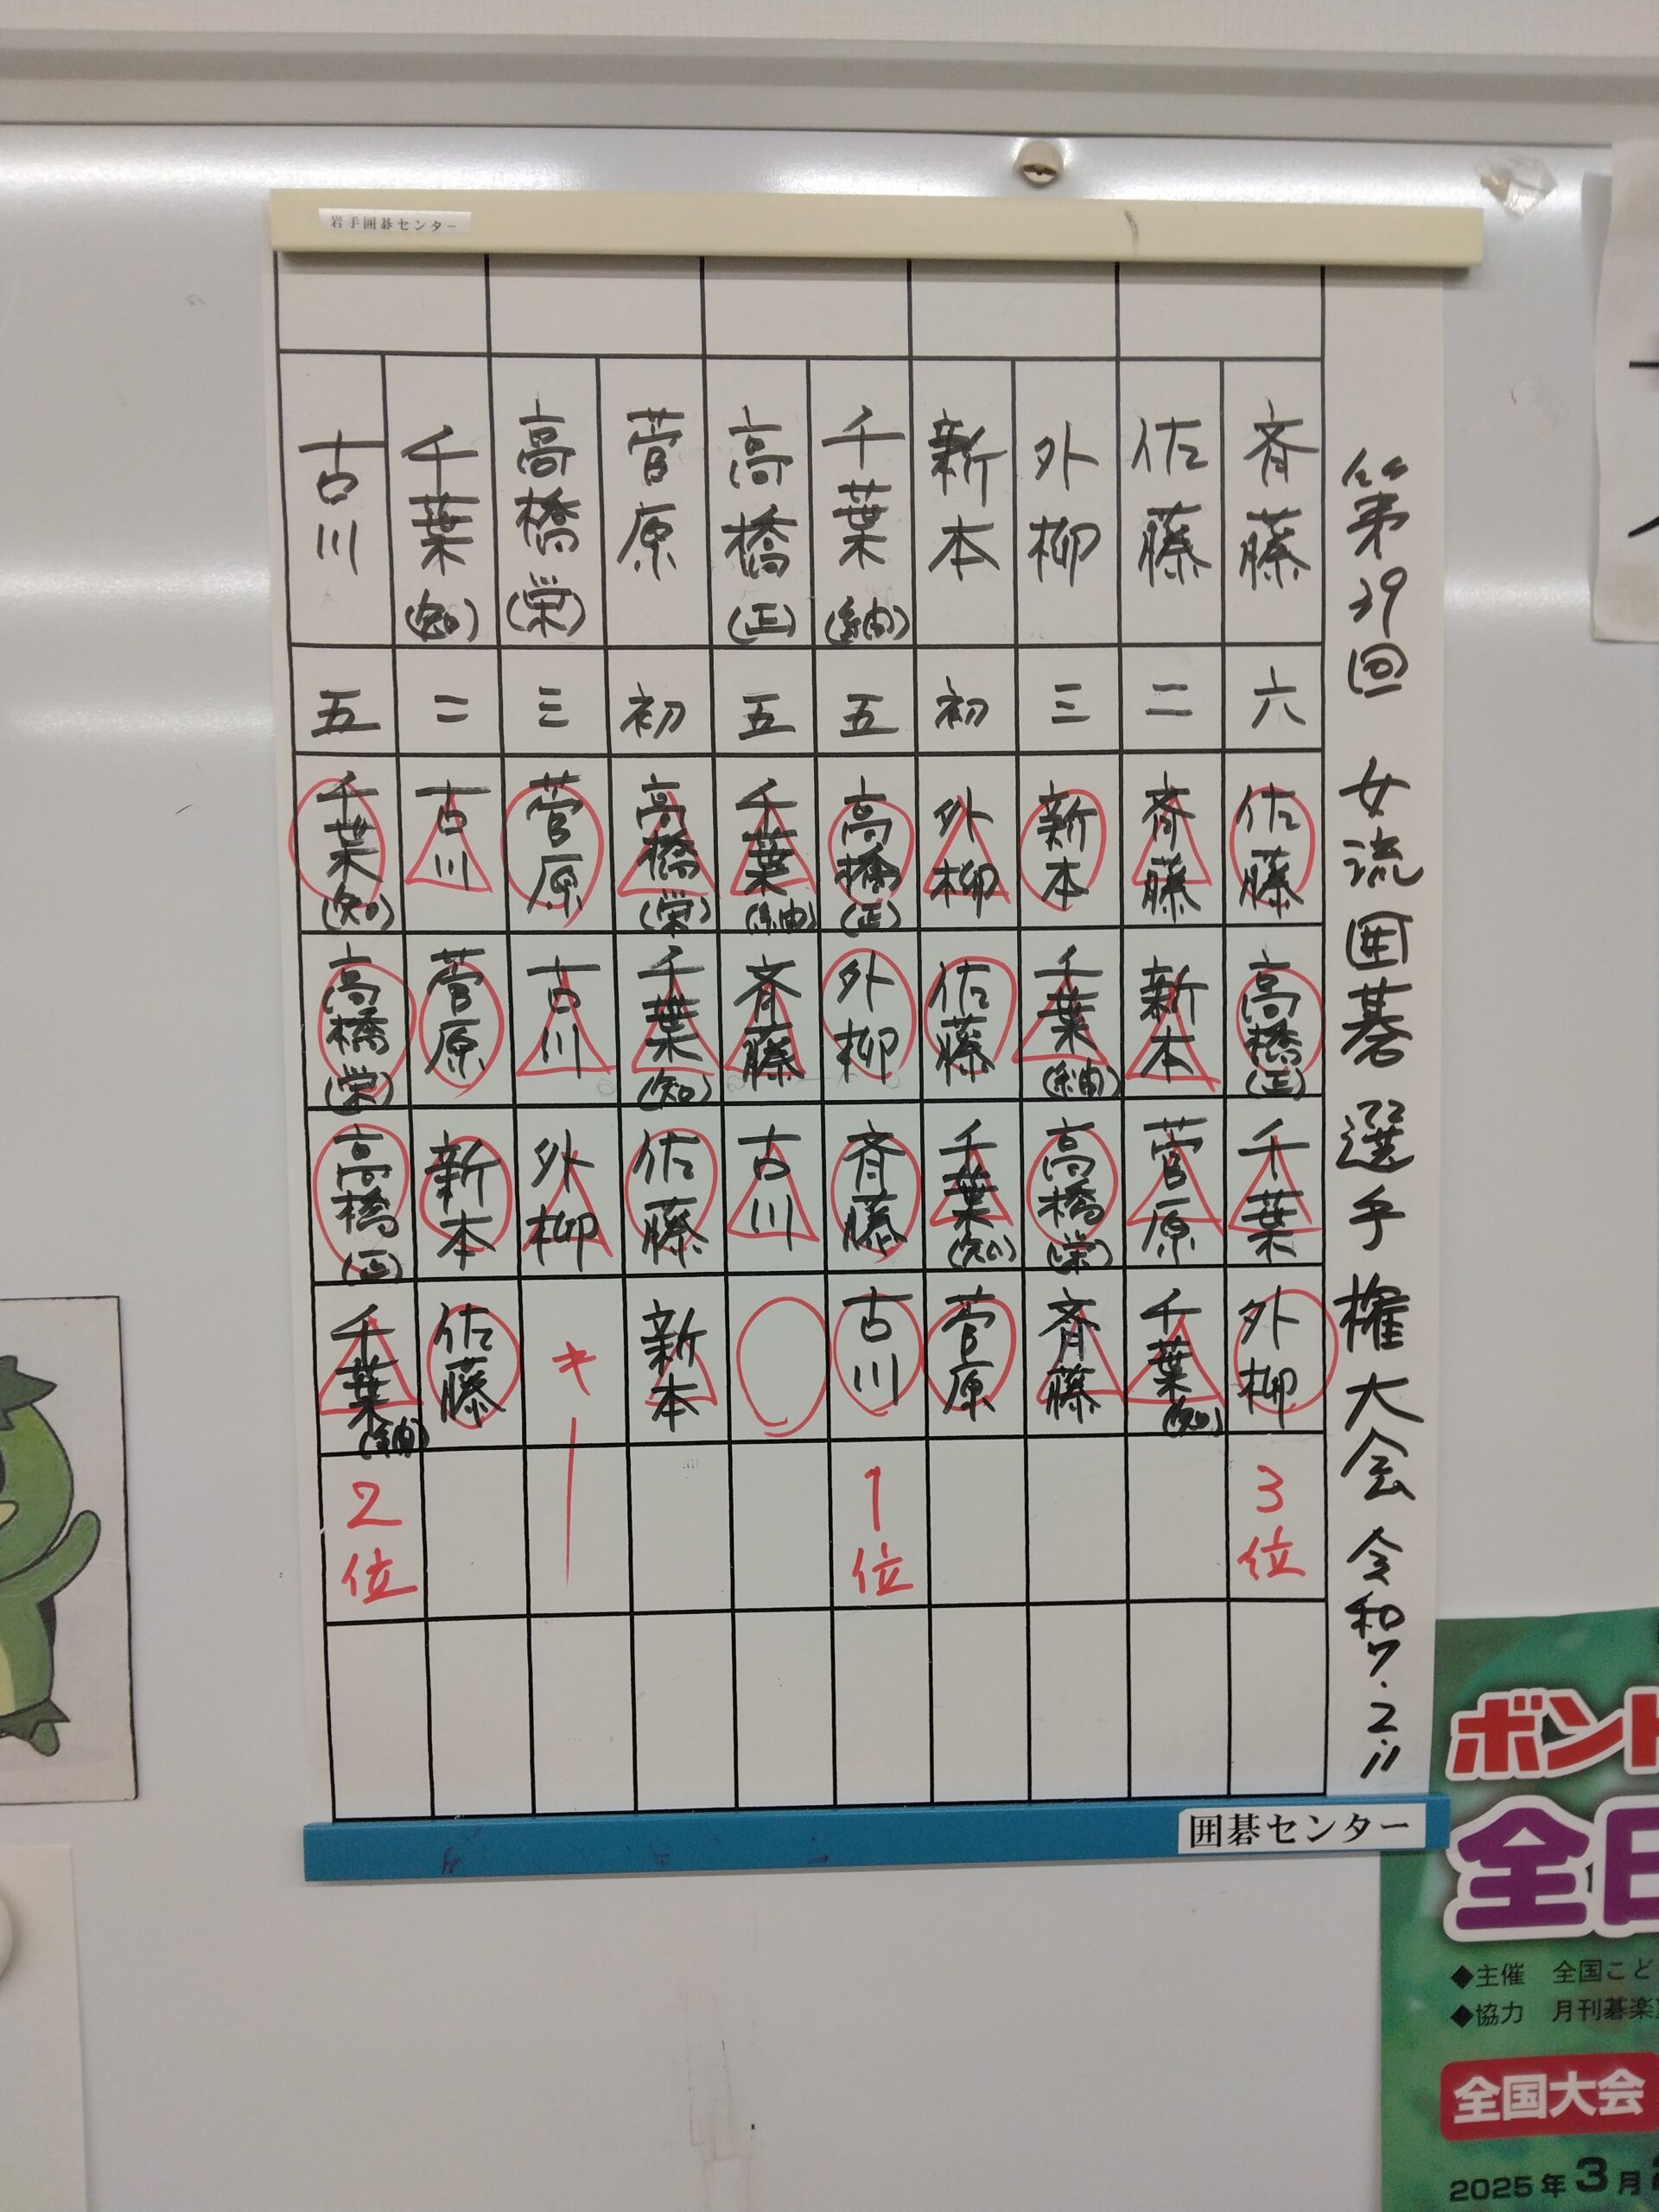 岩手囲碁センター
第39回 女流囲碁選手権大会 令和7.2.11
斉藤 六 佐藤 高橋(正) 千葉 外柳 3位
佐藤 二 斉藤 新本 菅原 千葉(知)
外柳 三 新本 千葉(紬) 高橋(栄) 斉藤
新本 初 外柳 佐藤 千葉(知) 菅原
千葉(紬) 五 高橋(正) 外柳 斉藤 古川 1位
高橋(正) 五 千葉(紬) 斉藤 古川
菅原 初 高橋(栄) 千葉(知) 佐藤 新本
高橋(栄) 三 菅原 古川 外柳 キ
千葉(知) 二 古川 菅原 新本 佐藤
古川 五 千葉(知) 高橋(栄) 高橋(正) 千葉(紬) 2位
囲碁センター
ボント
全日
◆主催 全国こど
◆協力 月刊碁楽
全国大会
2025年3月2